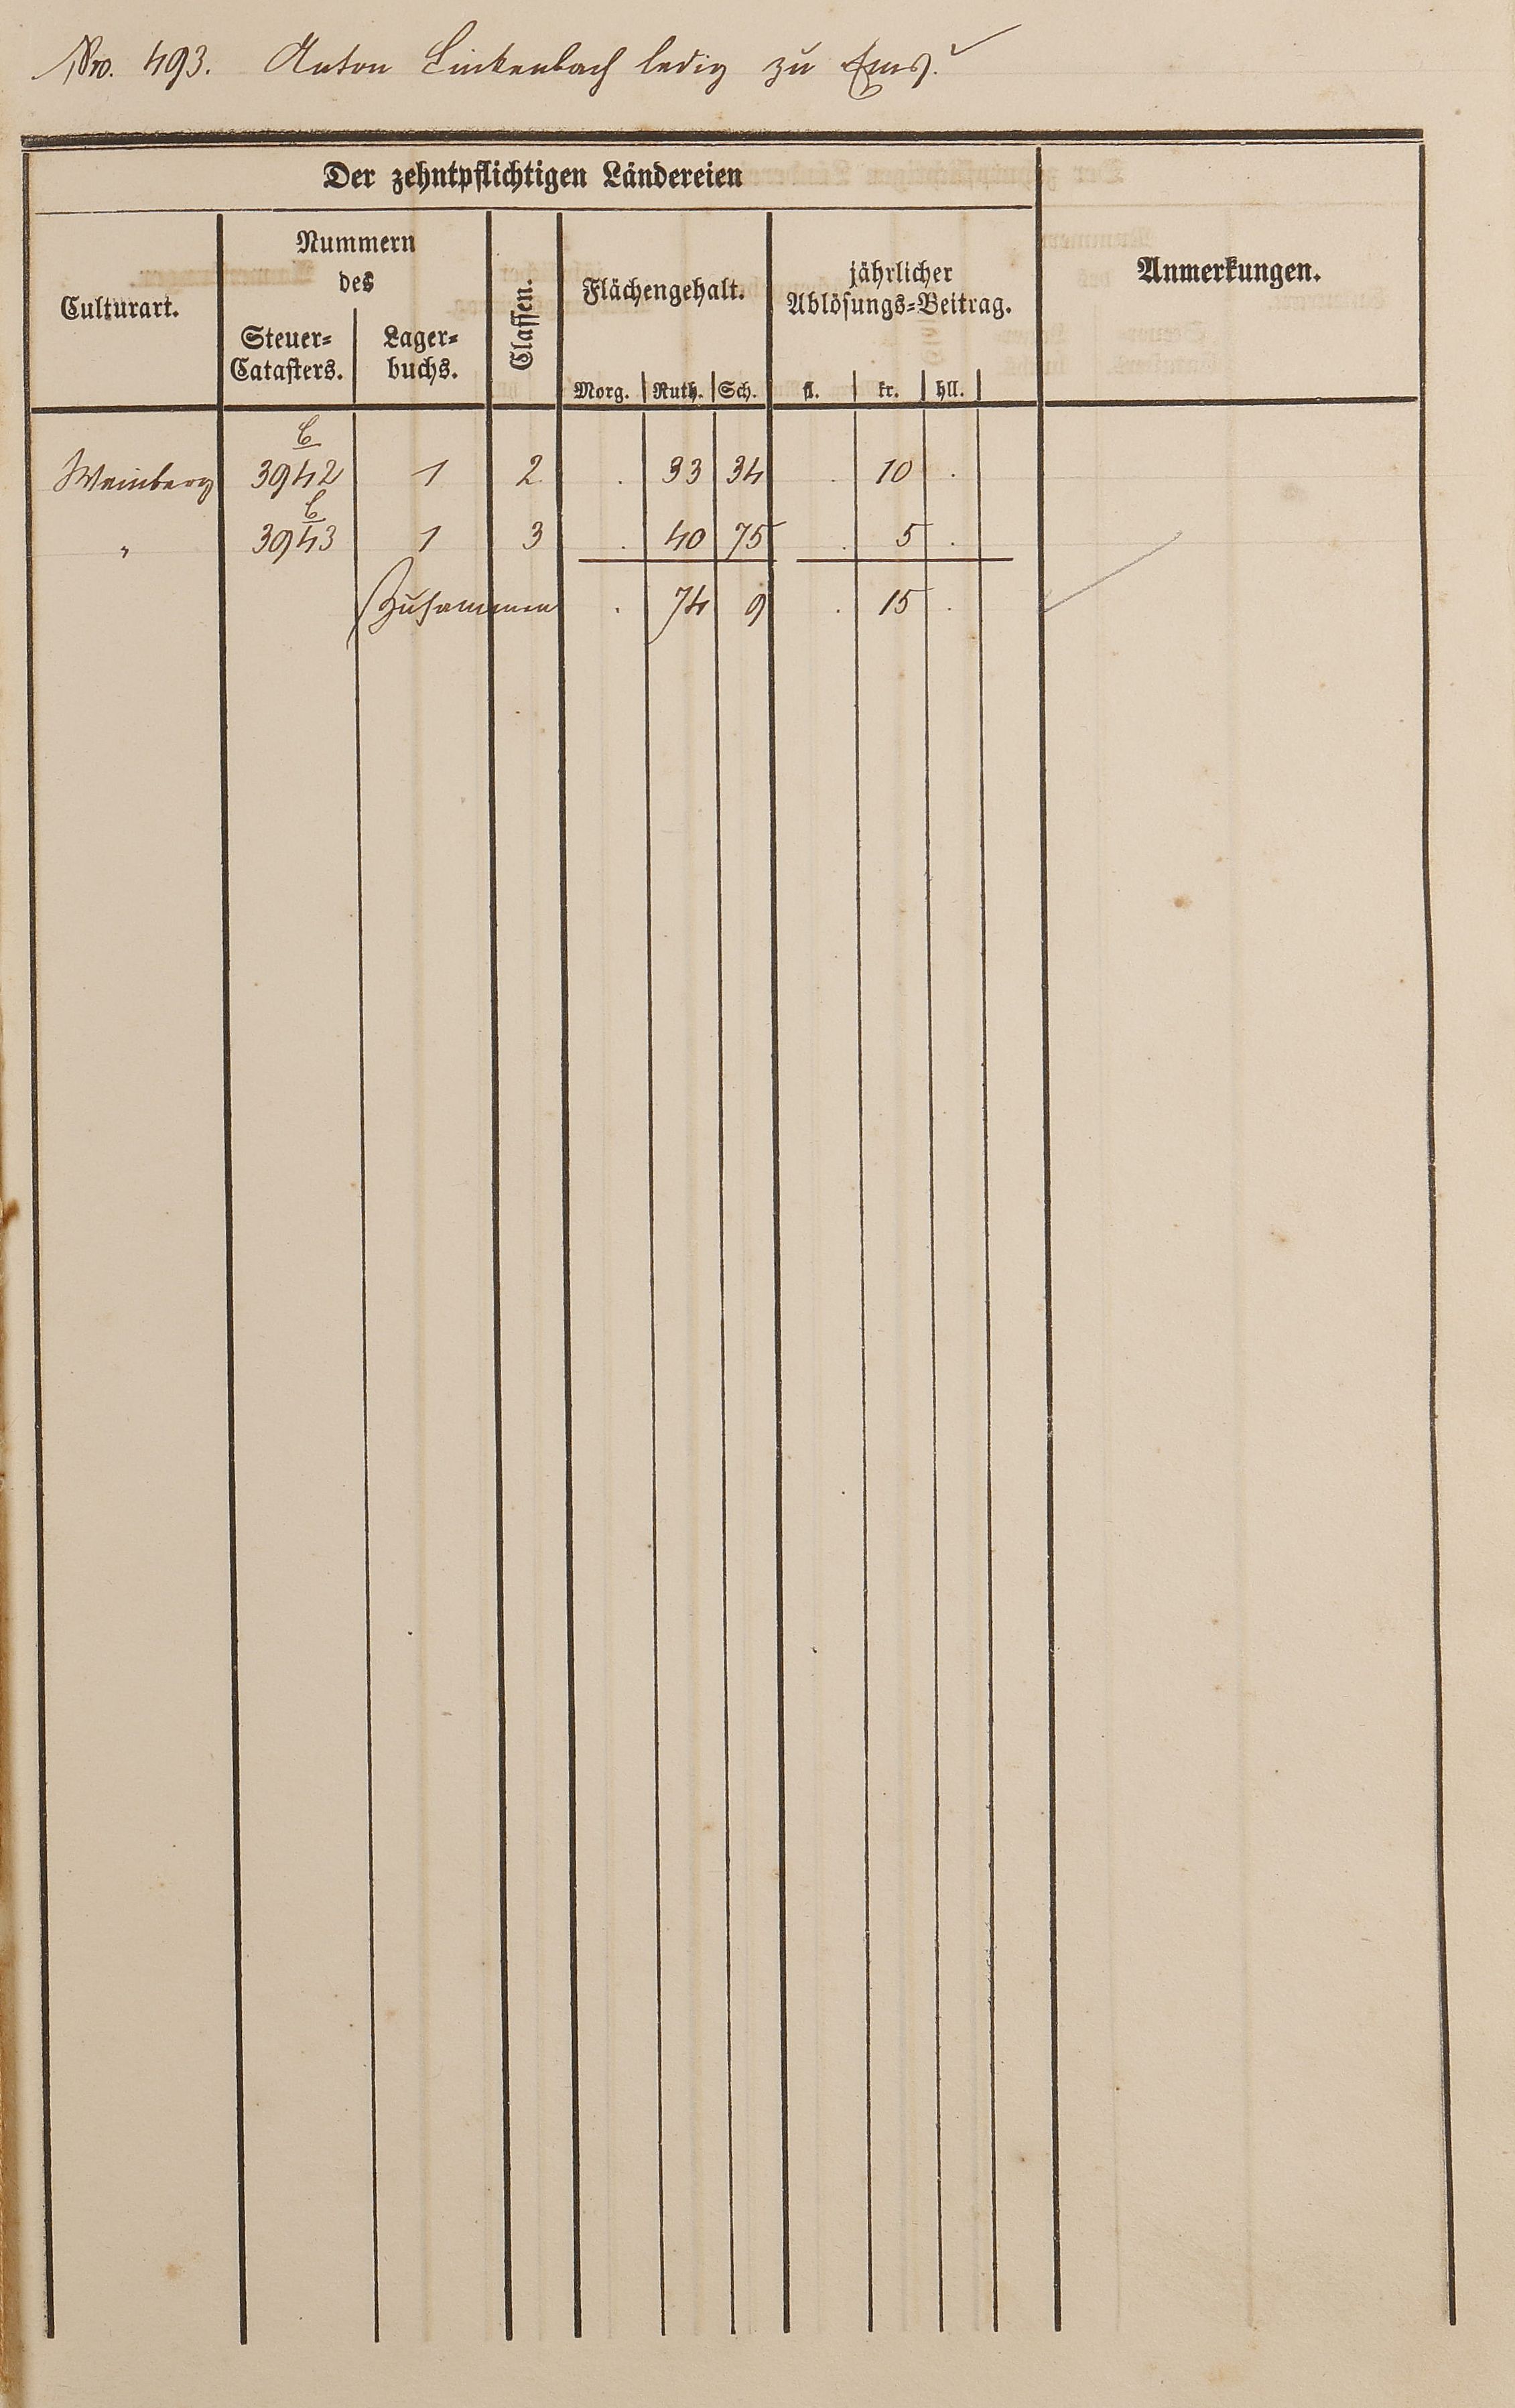 Nro. 493. Anton Linkenbach ledig zu Ems.
Der zehntpflichtigen Ländereien
Culturart.
Nummern
des
Steuer=
Catasters.
Lager=
buchs.
Classen.
Flächengehalt.
Morg. Ruth. Sch.
jährlicher
Ablösungs=Beitrag.
fl. kr. hll.
Anmerkungen.
C
Weinberg 3942 1 2 . 33 34 . 10 .
C
" 3943 1 3 . 40 75 . 5 .
Zusammen . 74 9 . 15 .